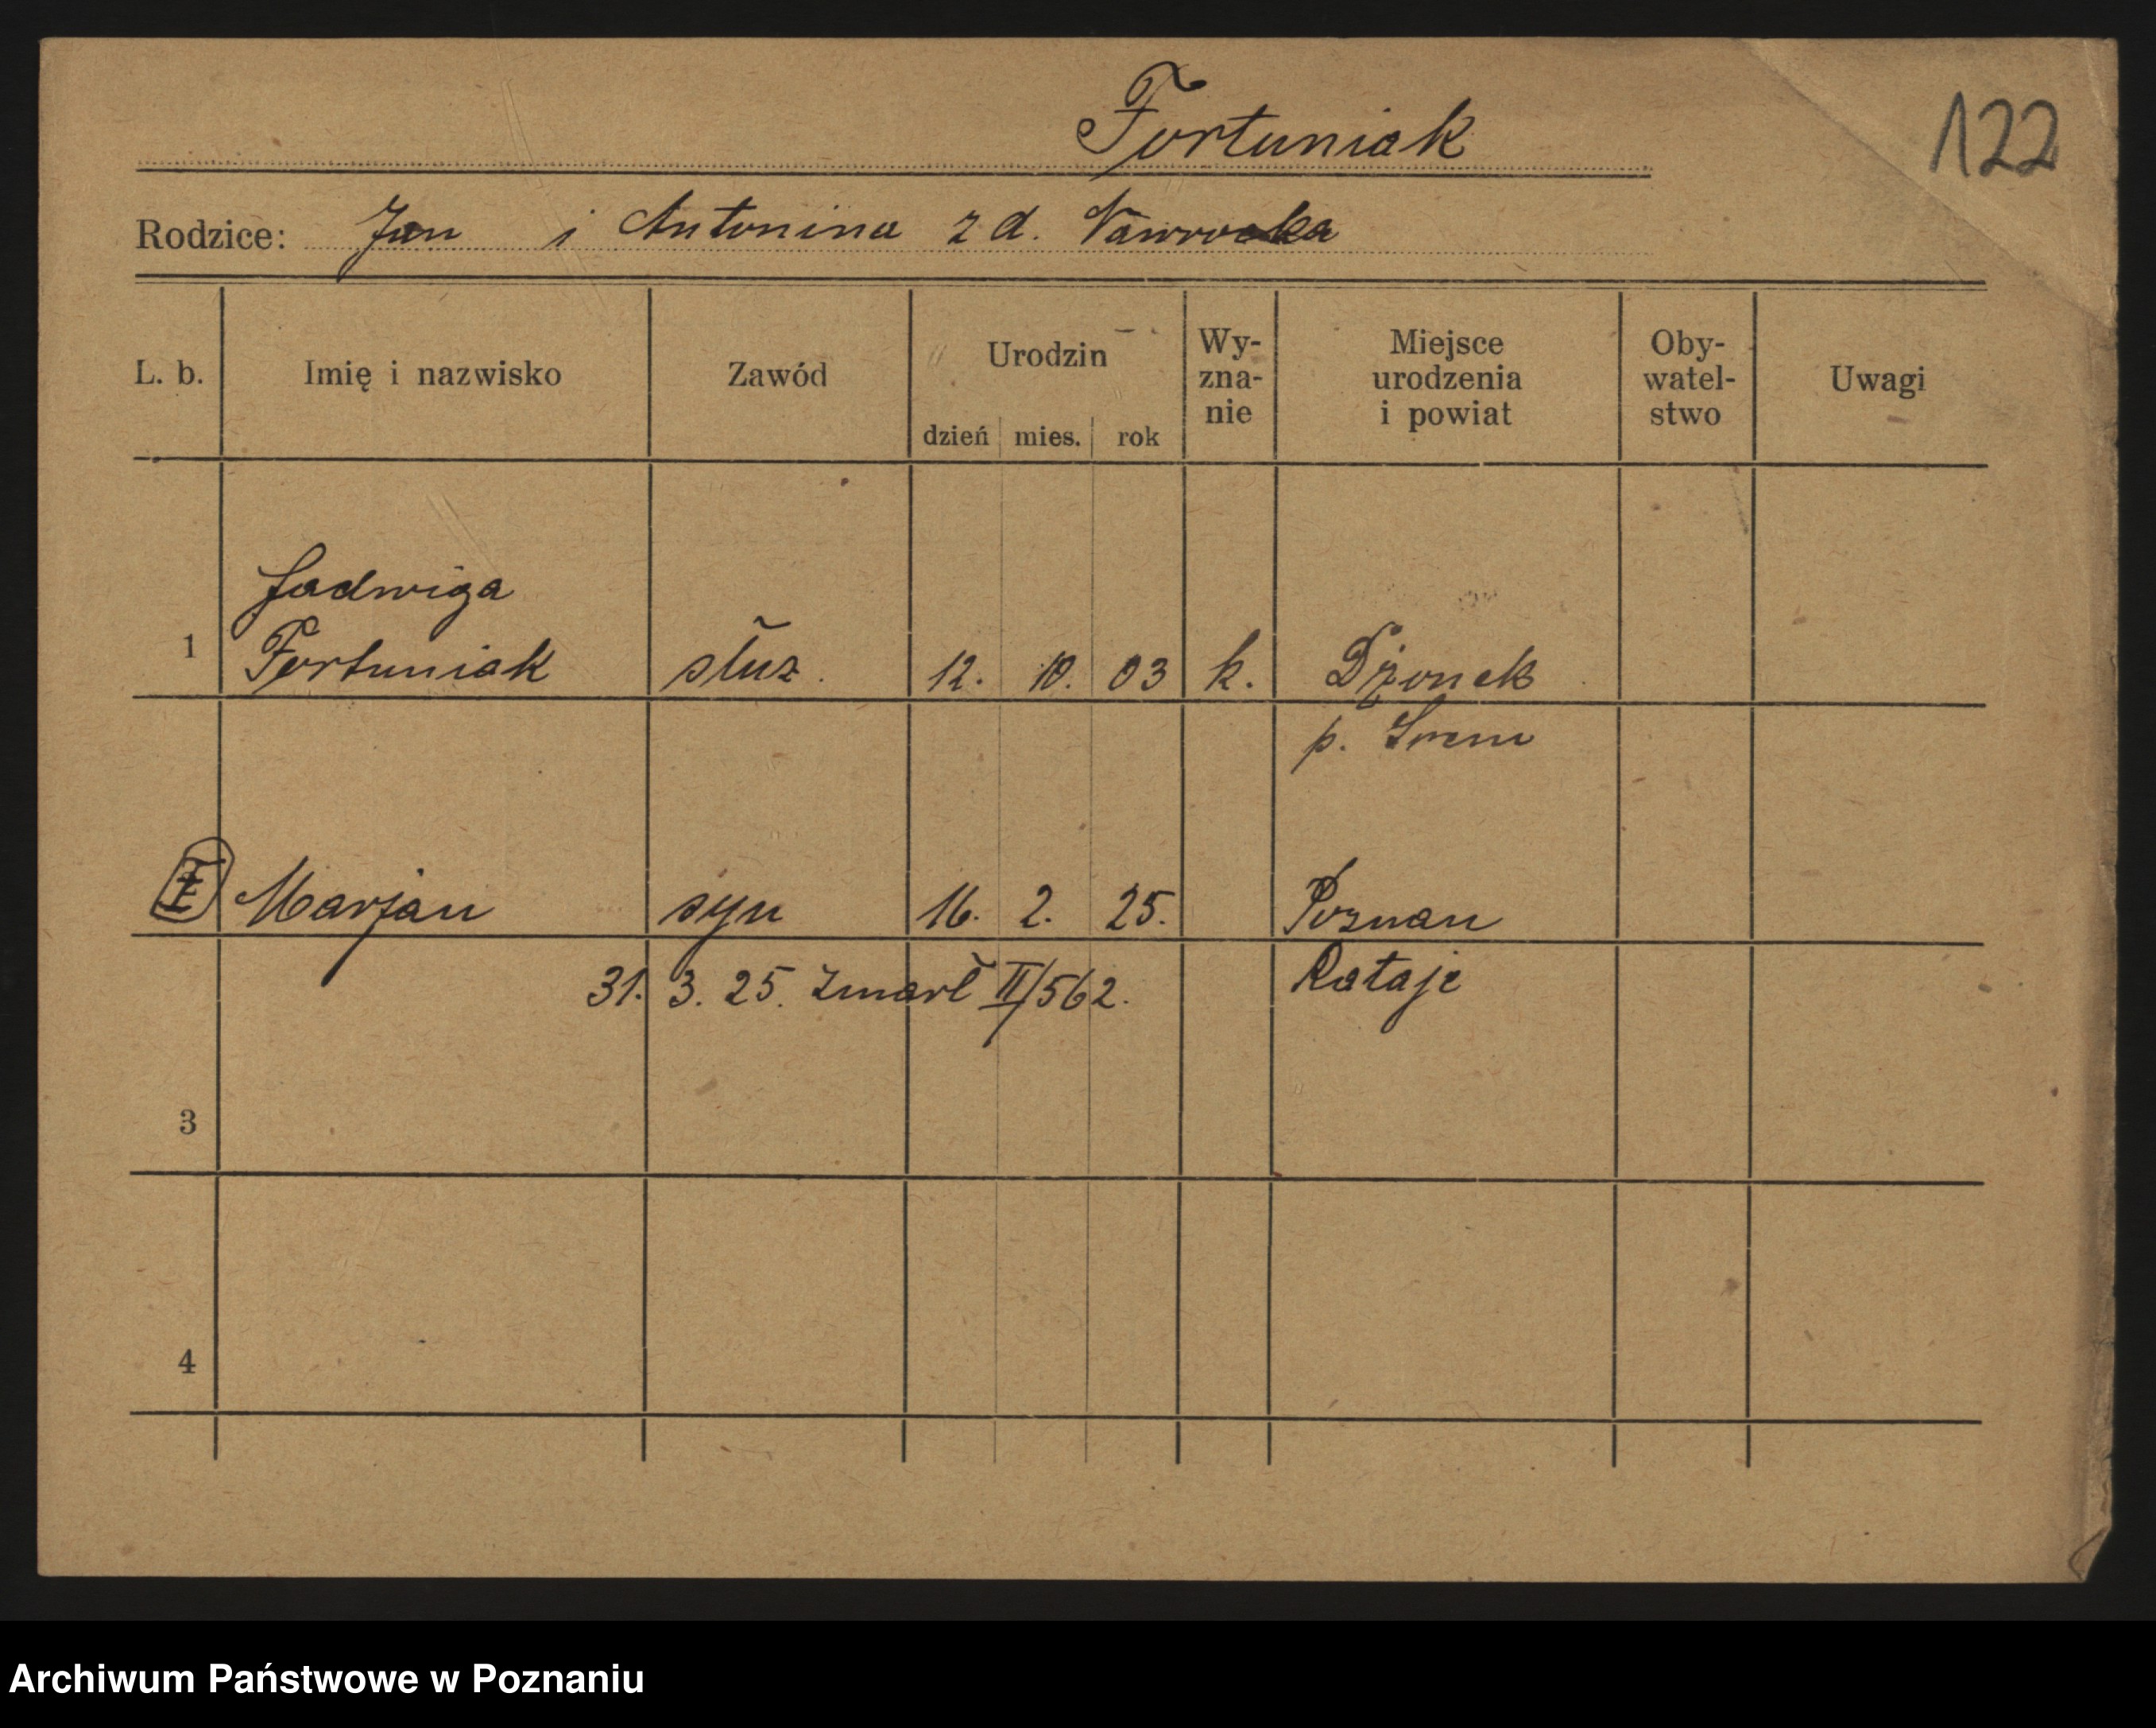 Fortuniak
122
Rodzice: Jan i Antonina z d. Nawrocka
L. b. Imię i nazwisko Zawód Urodzin dzień mies. rok Wy-zna-nie Miejsce urodzenia i powiat Oby-watel-stwo Uwagi
Jadwiga
1 Fortuniak służ. 12. 10. 03 k. Dżonek
p. Śrem
Marjan syn 16. 2. 25. Poznan
31. 3. 25. Zmarł II/562. Rataje
3
4
Archiwum Państwowe w Poznaniu